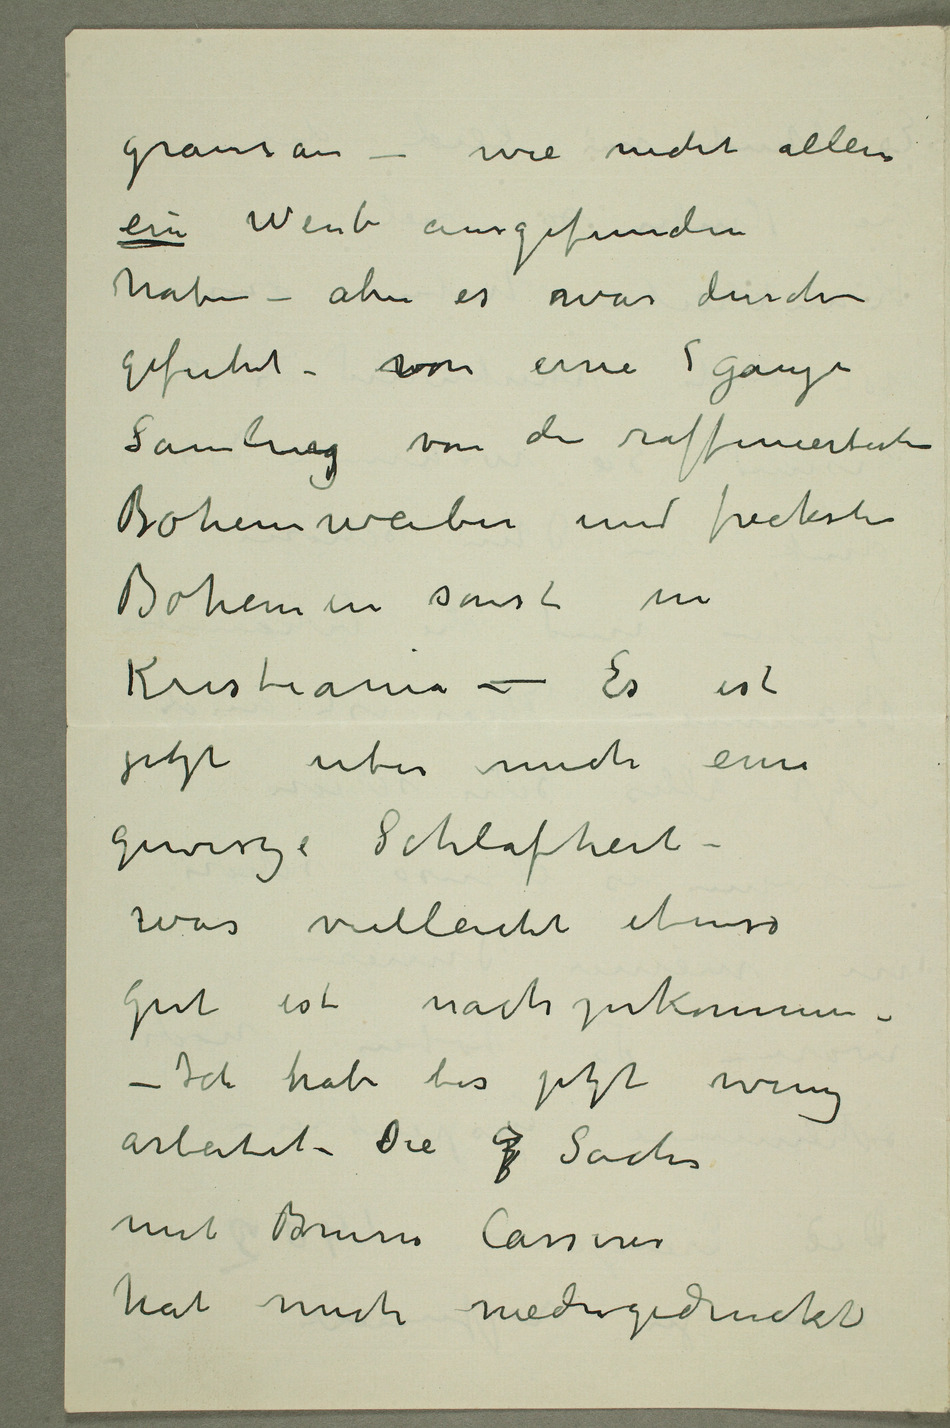 grausam – wie nicht allein
ein Weib ausgefunden
habe – aber es war durch
gefurht – von eine ganze
Samlung von die raffiniertesten
Bohemweiber und freckste
Bohemien sonst in
Kristiania – Es ist
jetzt uber mich eine
gewisze Schlafheit –
was vielleicht ebenso
gut ist nach zu kommen –
– Ich habe bis jetzt wenig
arbeitet – Die Sache
mit Bruno Cassirer
hat mich niedergedruckt